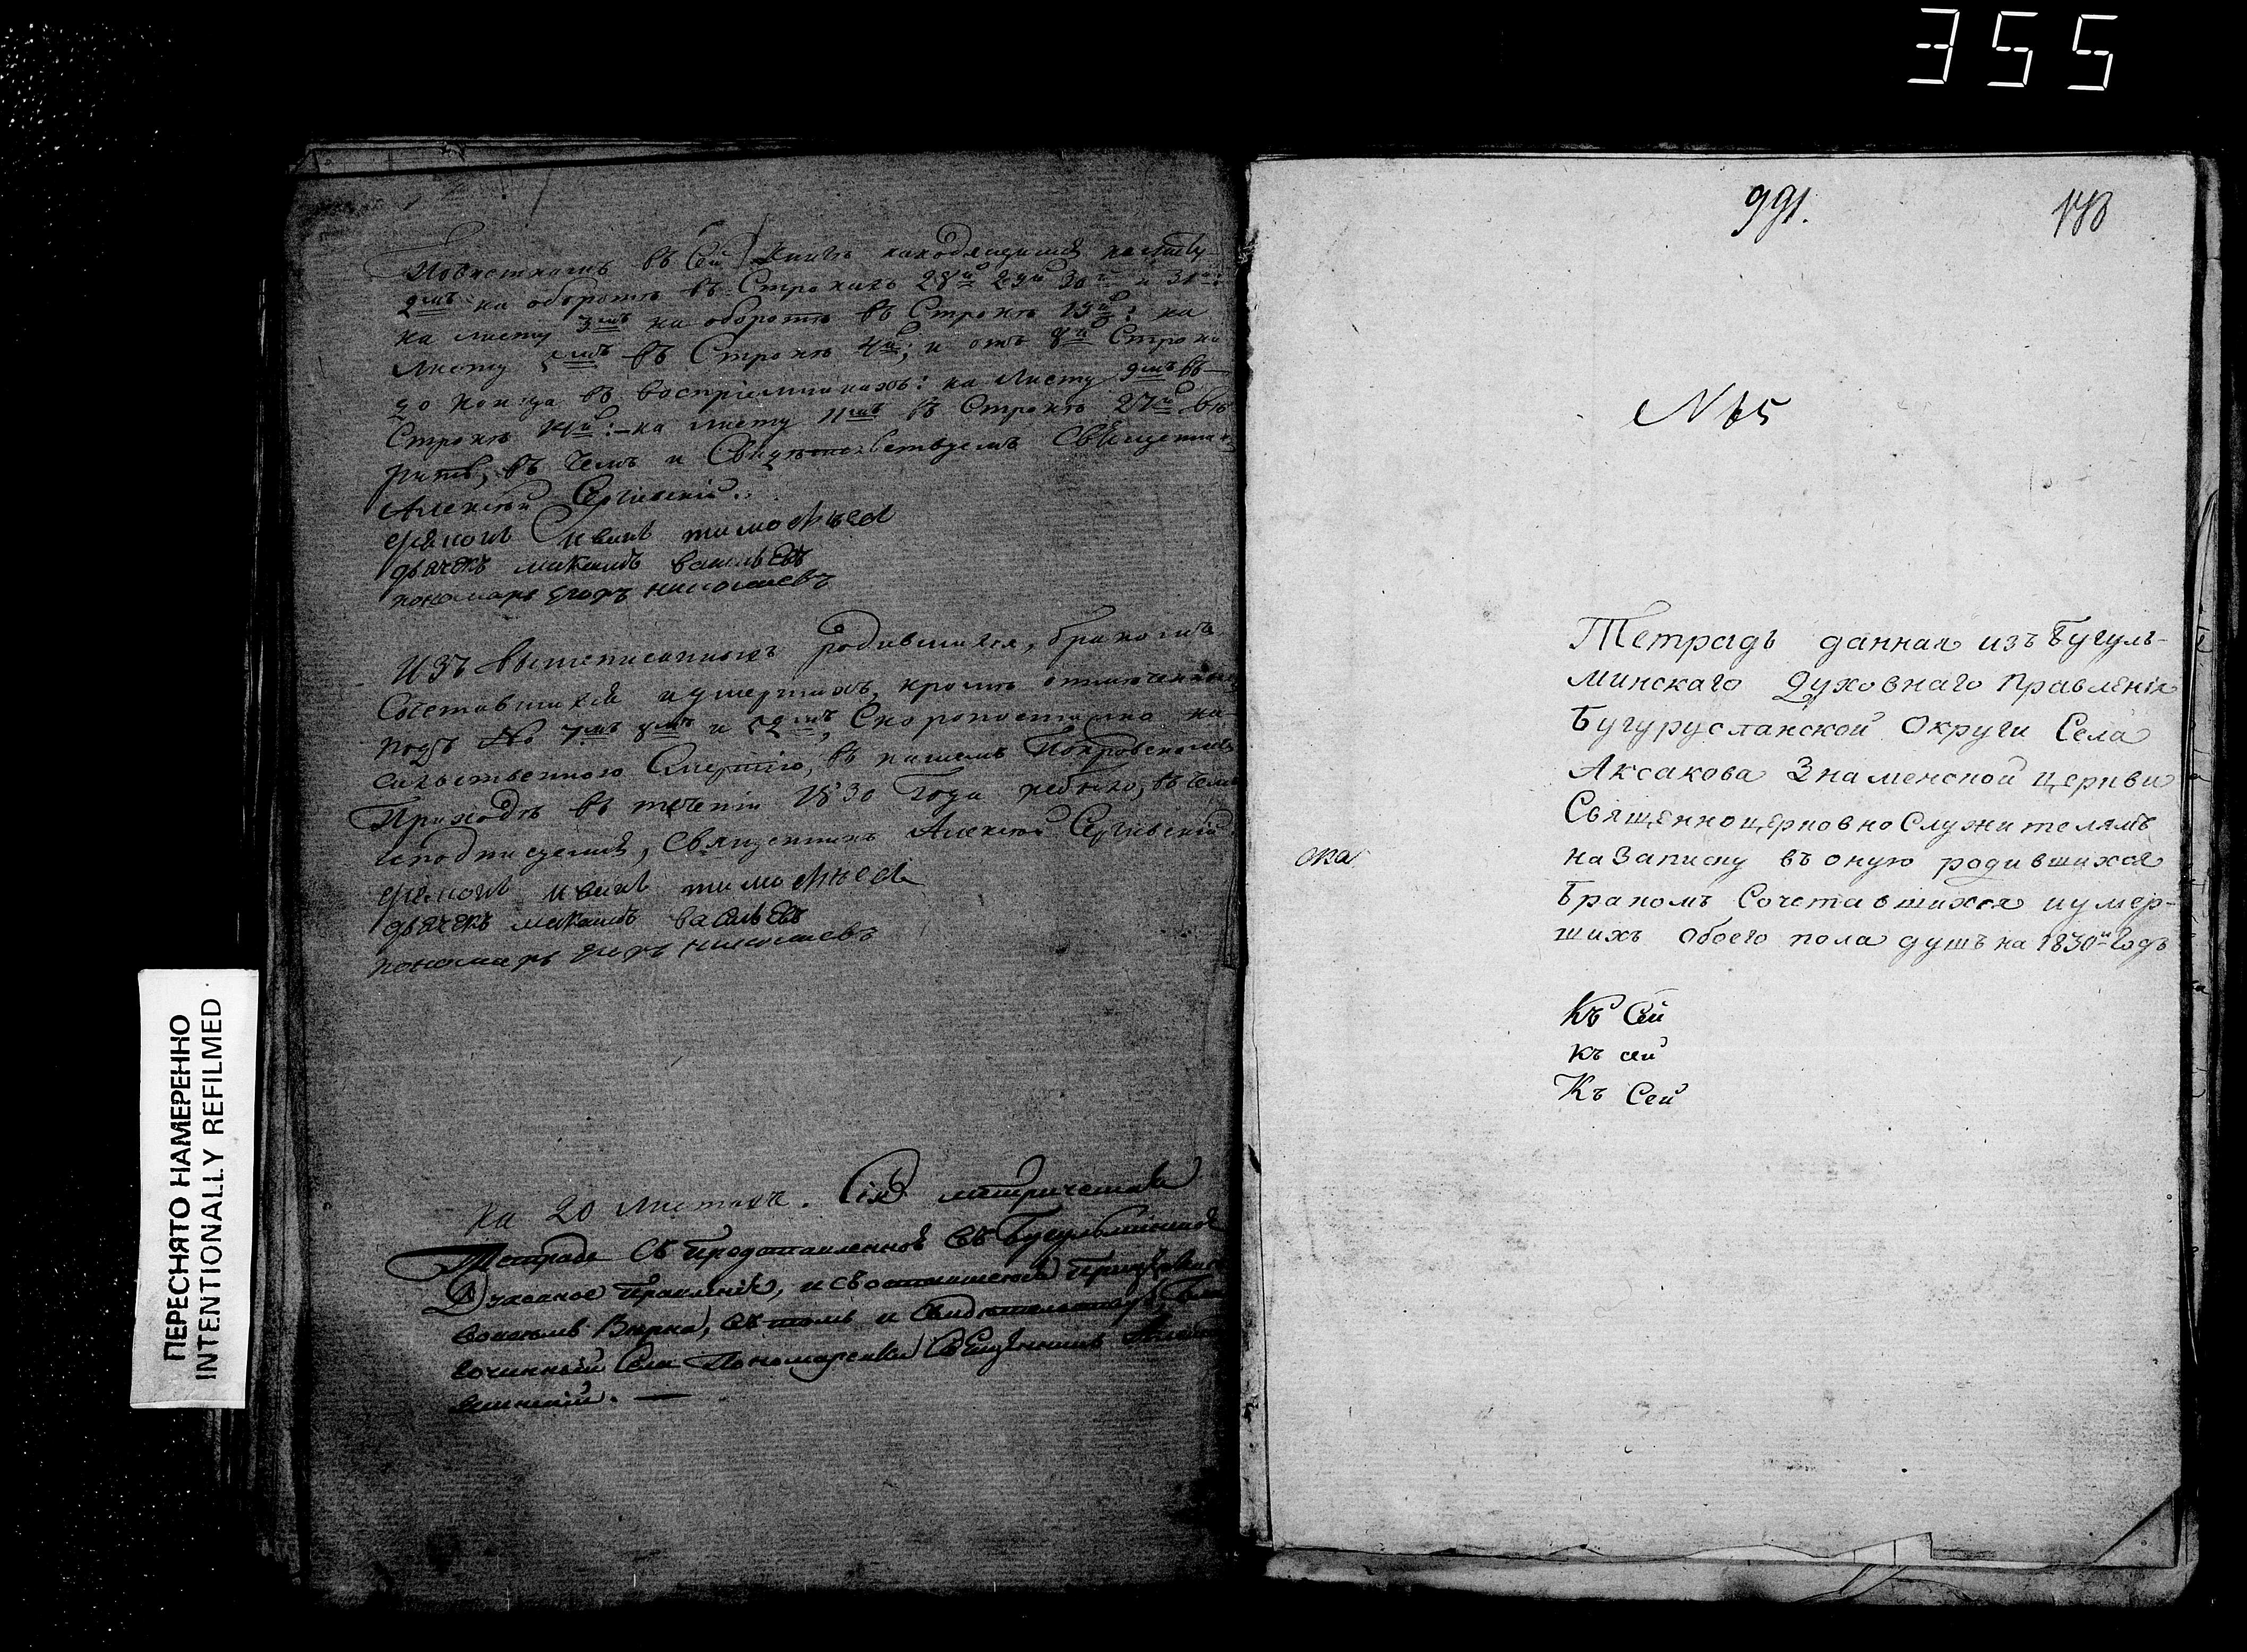 355
Подчисткамъ въ Сей Книгѣ находящимся на листу
2мъ на оборотѣ въ Строкахъ 28й 29й 30й и 31й:
на листу 3мъ на оборотѣ въ Строкѣ 15й: на
листу 5мъ въ Строкѣ 4й; и отъ 8й Строки
до конца въ воспріемникахъ: на листу 9мъ въ
Строкѣ 14й: на листу 11мъ въ Строкѣ 27й вѣ-
рить, въ чемъ и Свидѣтельствуемъ Священникъ
Алексѣй Сергіевскій.
Иванъ тимофѣев
дьячекъ васильевъ
пономарь Егоръ николаевъ
Изъ вышеписанныхъ родившихся, бракомъ
Сочетавшихся и умершихъ, кромѣ отмѣченныхъ
подъ No 7мъ 8мъ и 52мъ, Скоропостижно на-
сильственною Смертію, въ нашемъ Покровскомъ
Приходѣ въ теченіи 1830 Года небыло, въ чемъ
и подписуемся, Священникъ Алексѣй Сергіевскій
Иванъ тимофѣев
дьячекъ васильевъ
пономарь Егоръ николаевъ
На 20 листахъ. Сія метрическая
Тетрадь Съ представленной въ Бугульминское
Духовное Правленіе, и съ
вѣрна, въ томъ и Свидѣтельствую, Благо-
чинный Села Пономаревки Священникъ
ПЕРЕСНЯТО НАМЕРЕННО
INTENTIONALLY REFILMED
991.
N 65
Тетрадь данная изъ Бугуль-
минскаго Духовнаго Правленія
Бугурусланской Округи Села
Аксакова Знаменской церкви
Священноцерковно Служителямъ
на Записку въ оную родившихся
Бракомъ Сочетавшихся и умер-
шихъ обоего пола душъ на 1830й Годъ
ока
Къ Сей
къ сей
Къ Сей